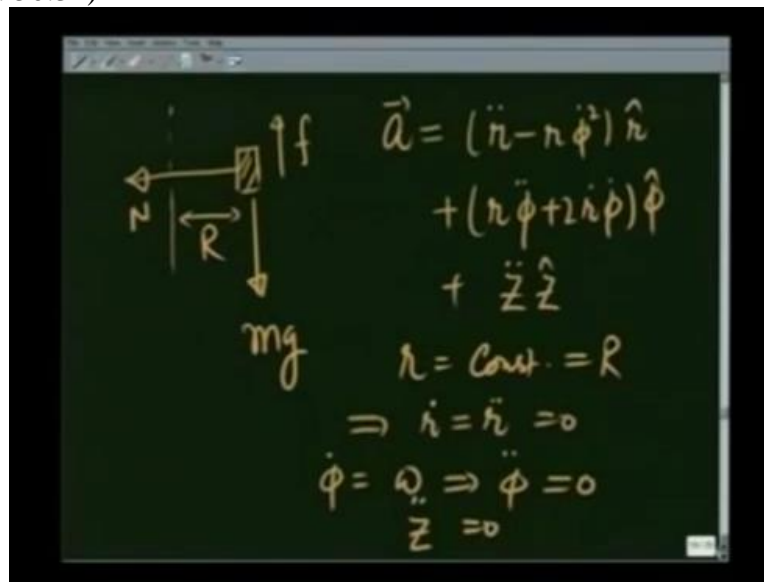 f
N
R
mg
\vec{a} = (\ddot{r} - r\dot{\phi}^2)\hat{r}
+ (r\ddot{\phi} + 2\dot{r}\dot{\phi})\hat{\phi}
+ \ddot{z}\hat{z}
r = Const. = R
⇒ \dot{r} = \ddot{r} = 0
\dot{\phi} = ω ⇒ \ddot{\phi} = 0
\ddot{z} = 0